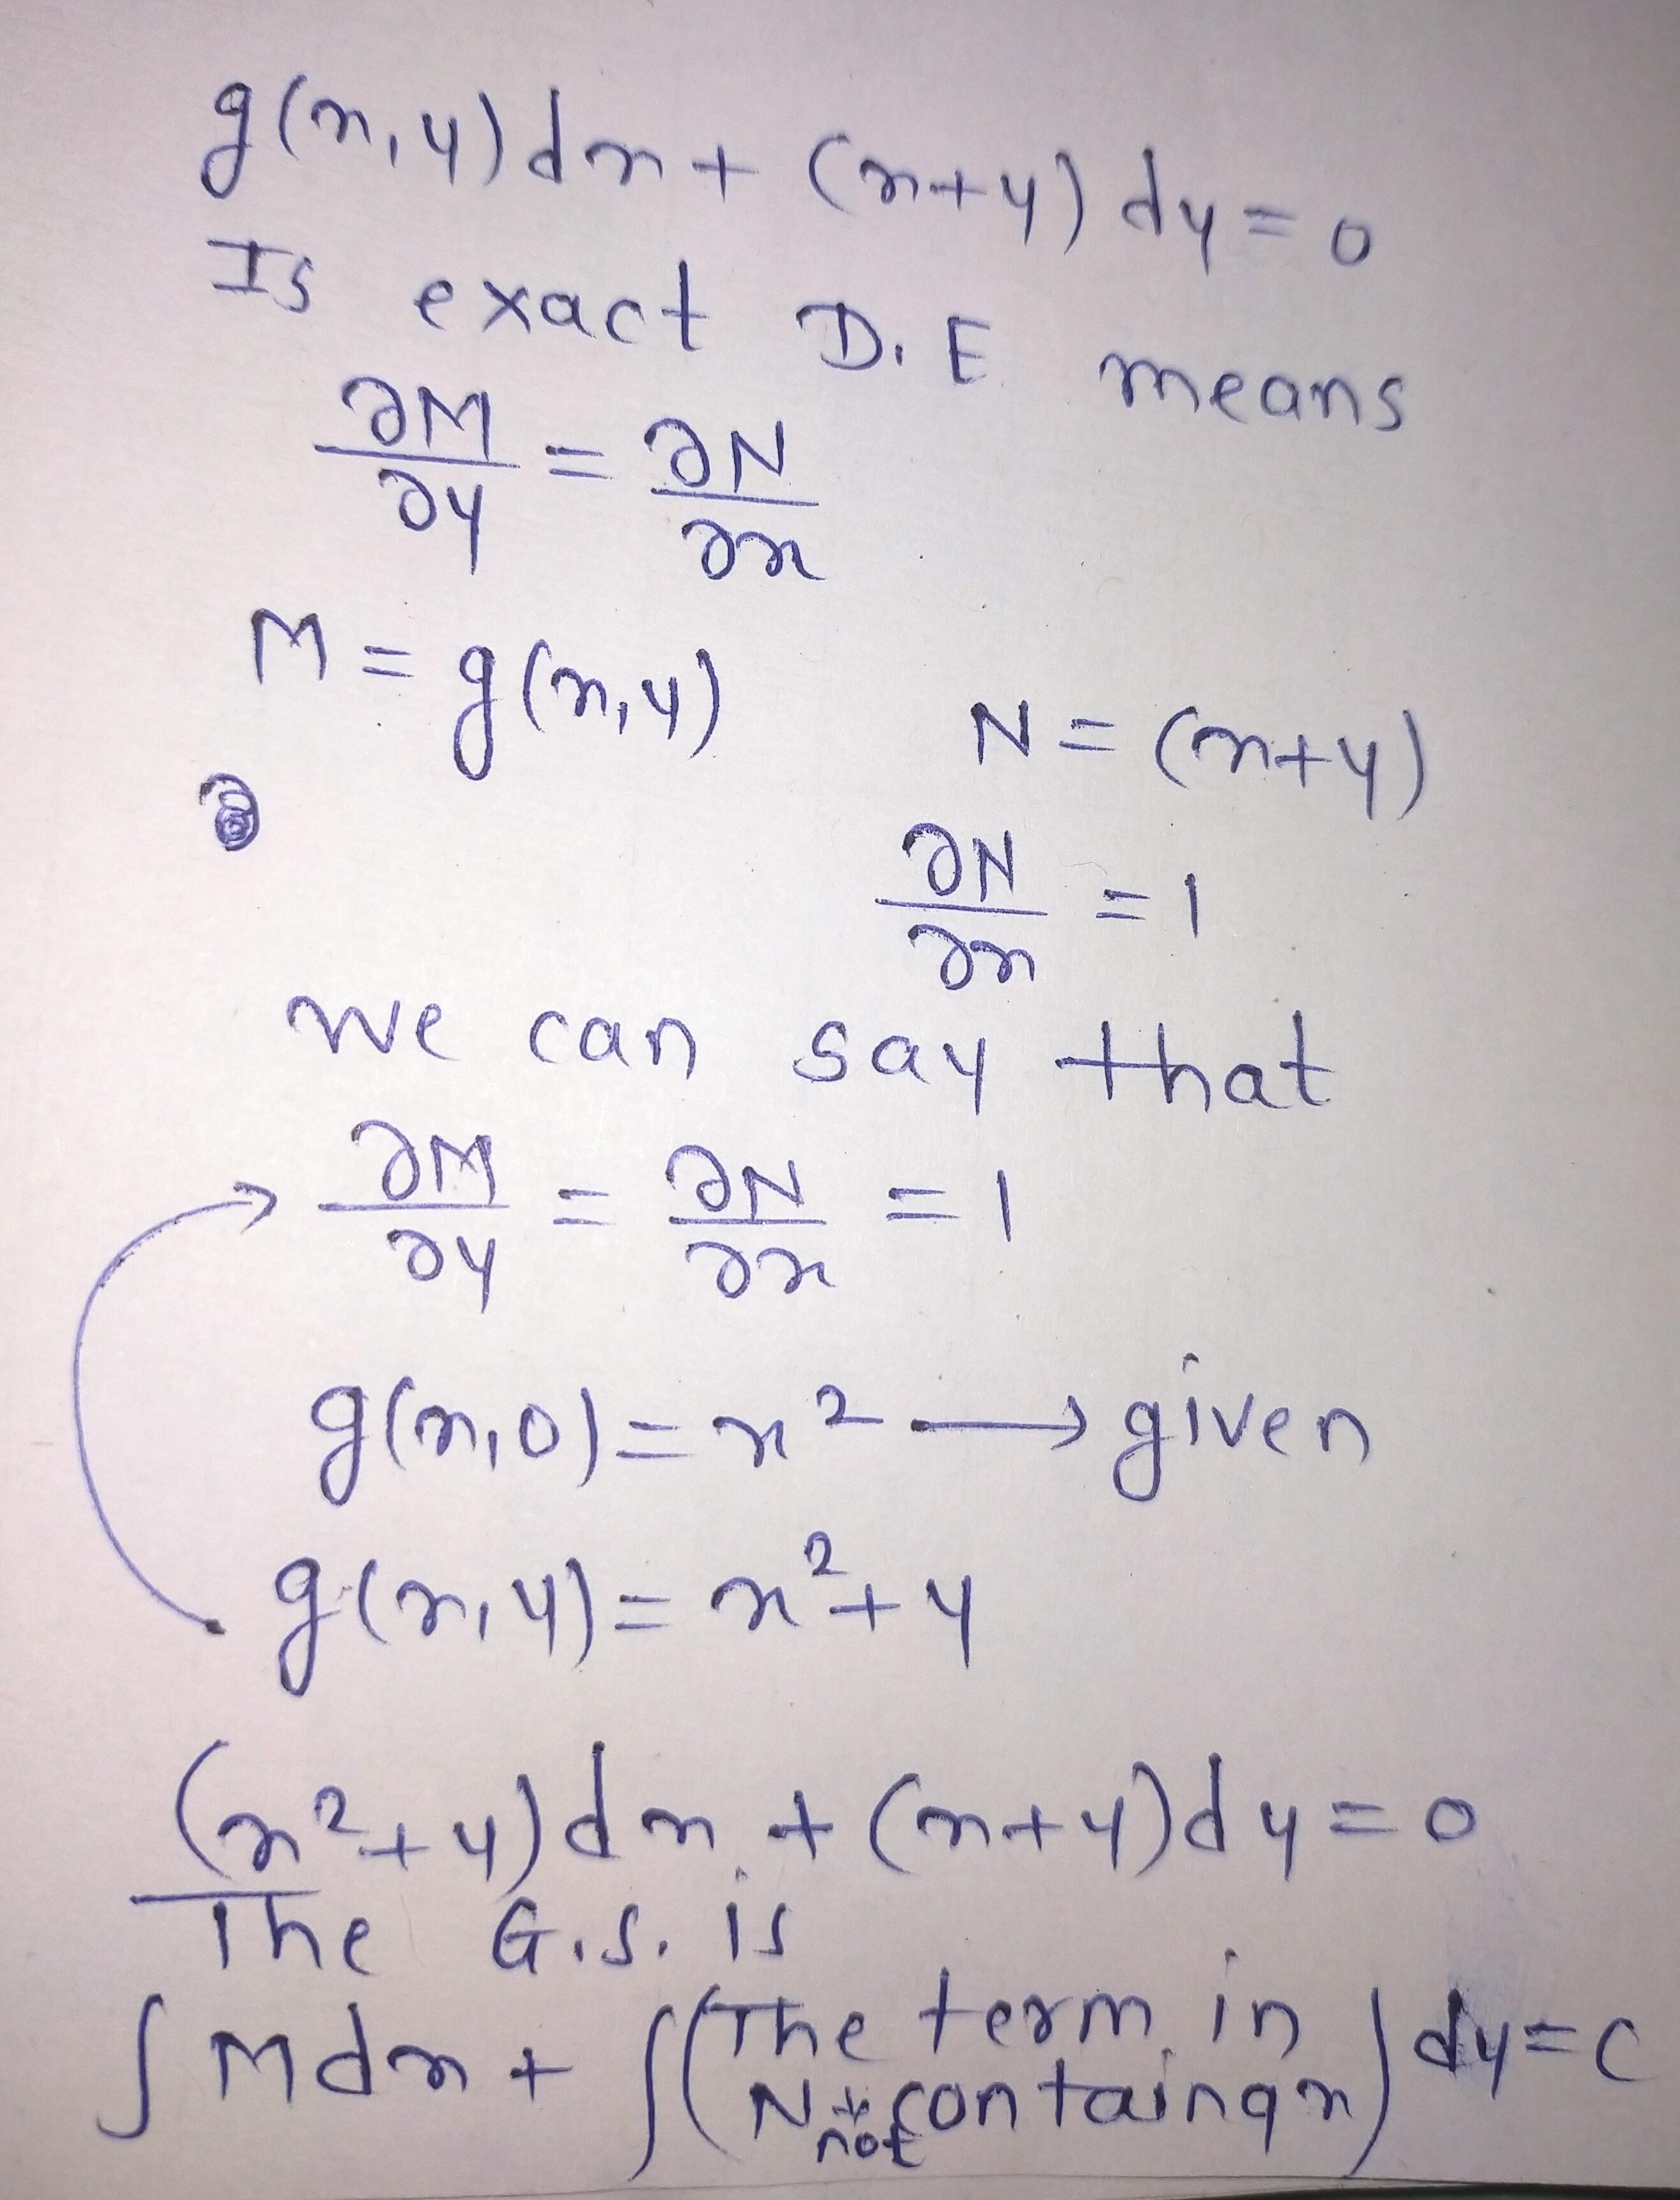 g(x,y)dx + (x+y) dy = 0
Is exact D.E means
∂M/∂y = ∂N/∂x
M = g(x,y) N = (x+y)
∂N/∂x = 1
We can say that
∂M/∂y = ∂N/∂x = 1
g(x,0) = x² → given
g(x,y) = x² + y
(x²+y)dx + (x+y)dy = 0
The G.S. is
∫Mdx + ∫(The term in N not containg x) dy = C